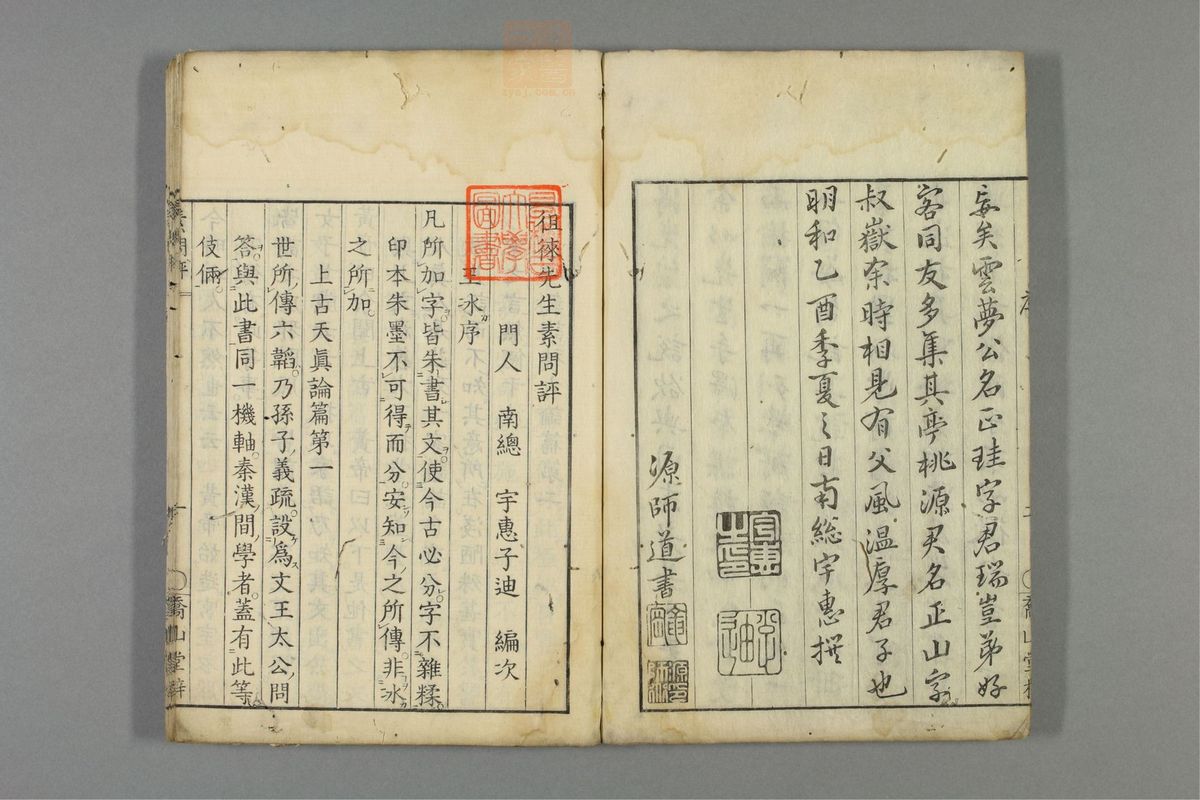 妄矣雲夢公名正珪字君瑞豈弟好
客同友多集其亭桃源君名正山字
叔嶽余時相見有父風温厚君子也
明和乙酉季夏之日南總宇惠撰
源師道書
徂徠先生素問評
門人 南總 宇惠子迪 編次
王冰序
凡所加字皆朱書其文使今古必分字不雜糅
印本朱墨不可得而分安知今之所傳非冰
之所加
上古天眞論篇第一
世所傳六韜乃孫子義疏設爲文王太公問
答與此書同一機軸秦漢間學者蓋有此等
伎倆